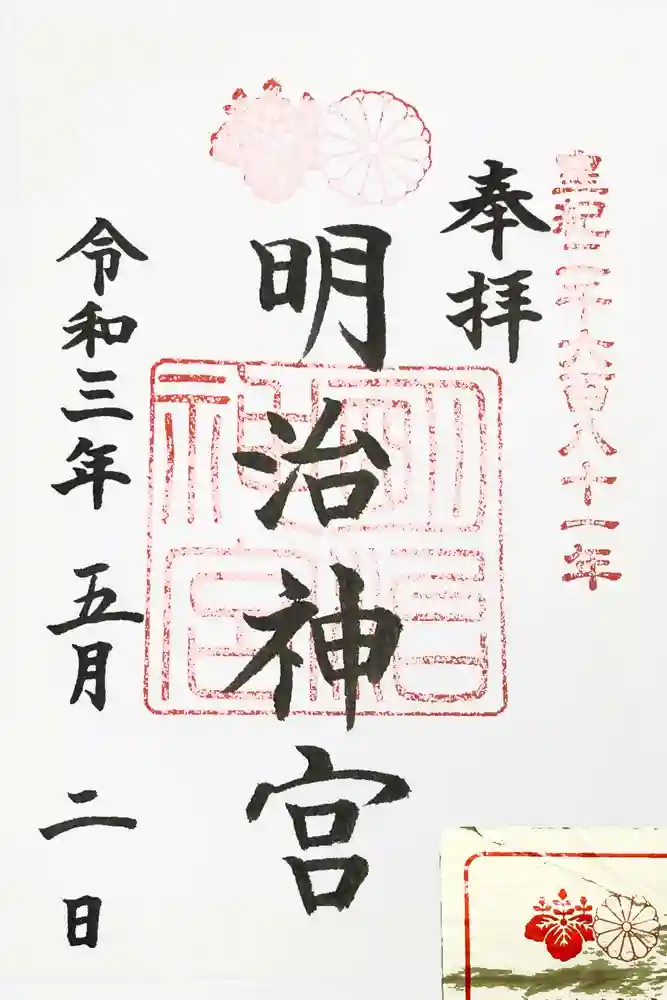 皇紀二千六百八十一年
奉拝
明治神宮
明治神宮
令和三年 五月 二日